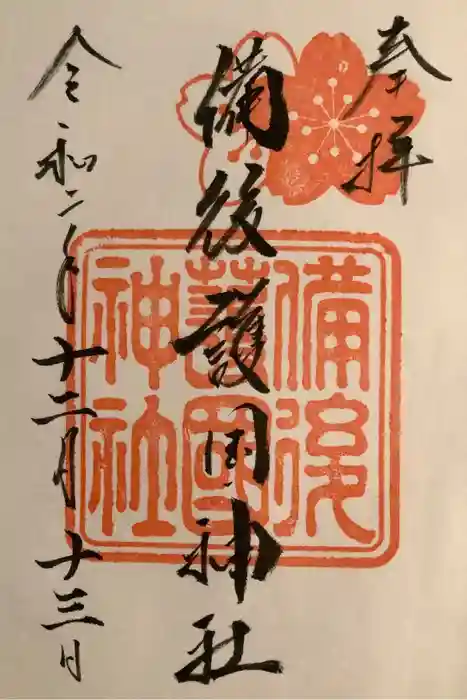 奉拝
備後護国神社
備後
護國
神社
令和二年十二月十三日